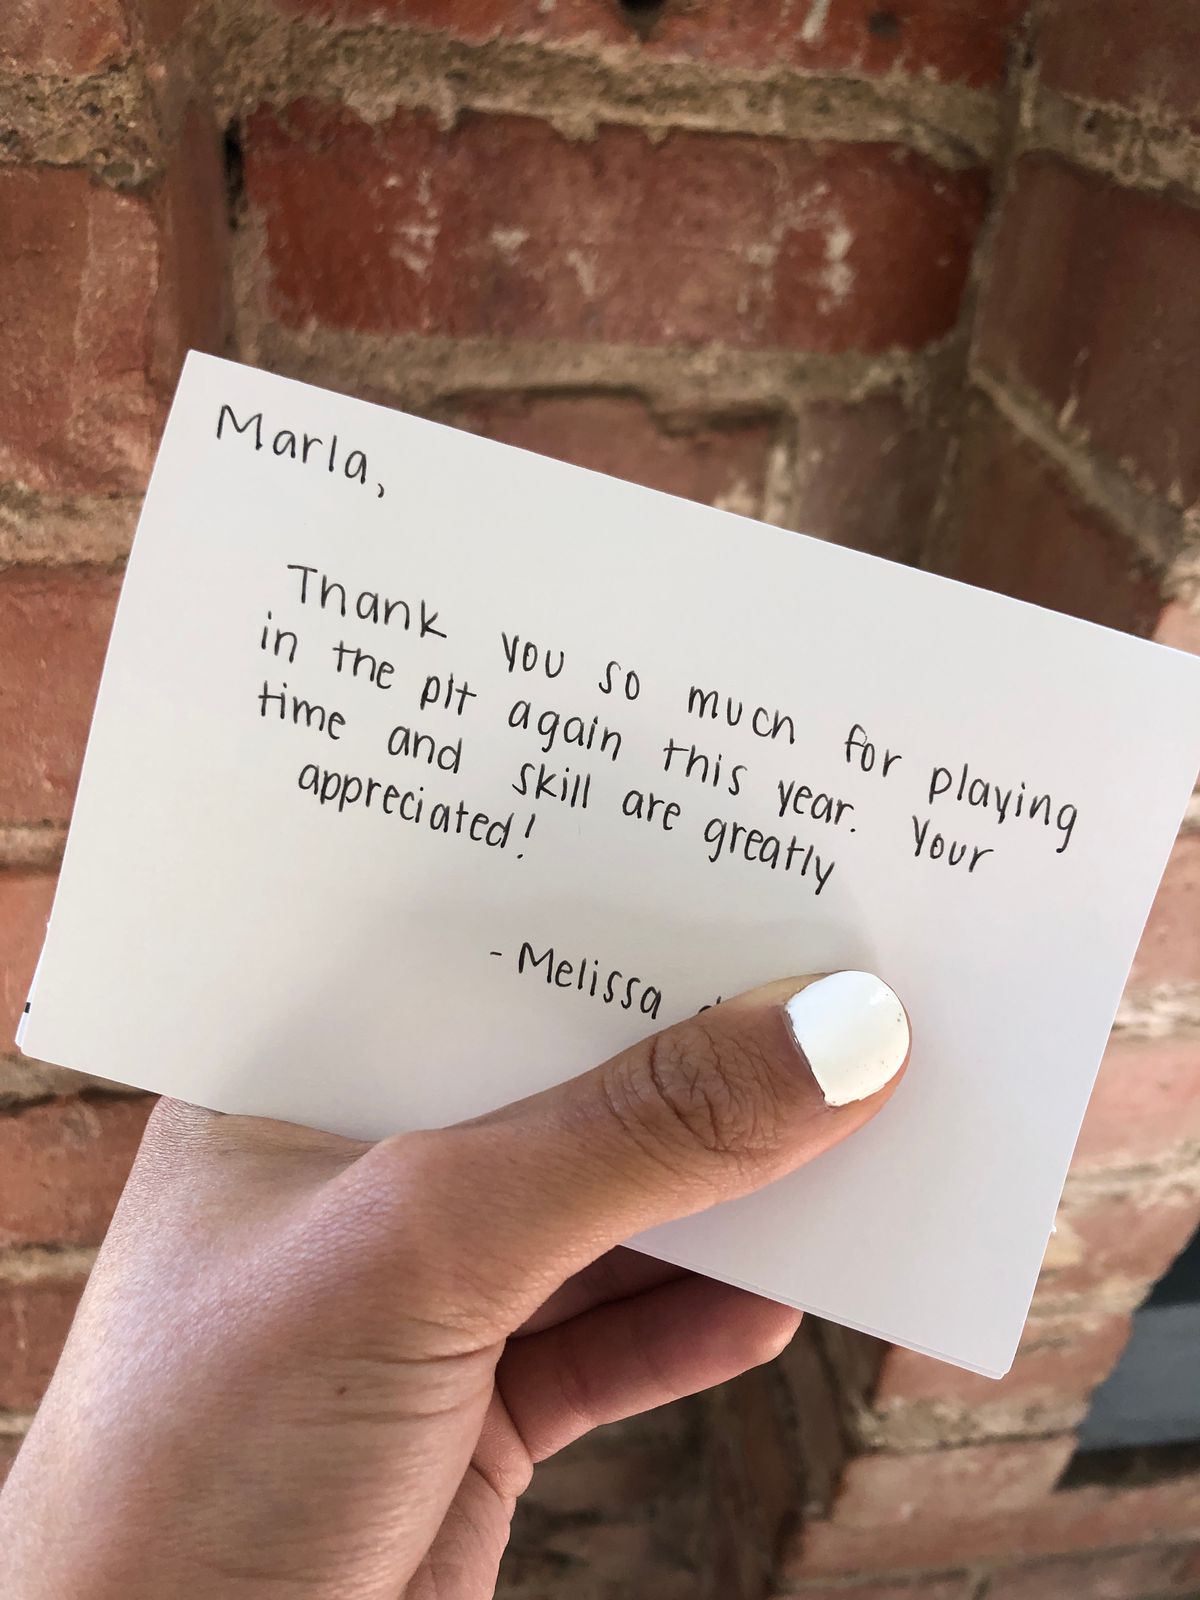 Marla,
Thank you so much for playing
in the pit again this year. Your
time and skill are greatly
appreciated!
- Melissa